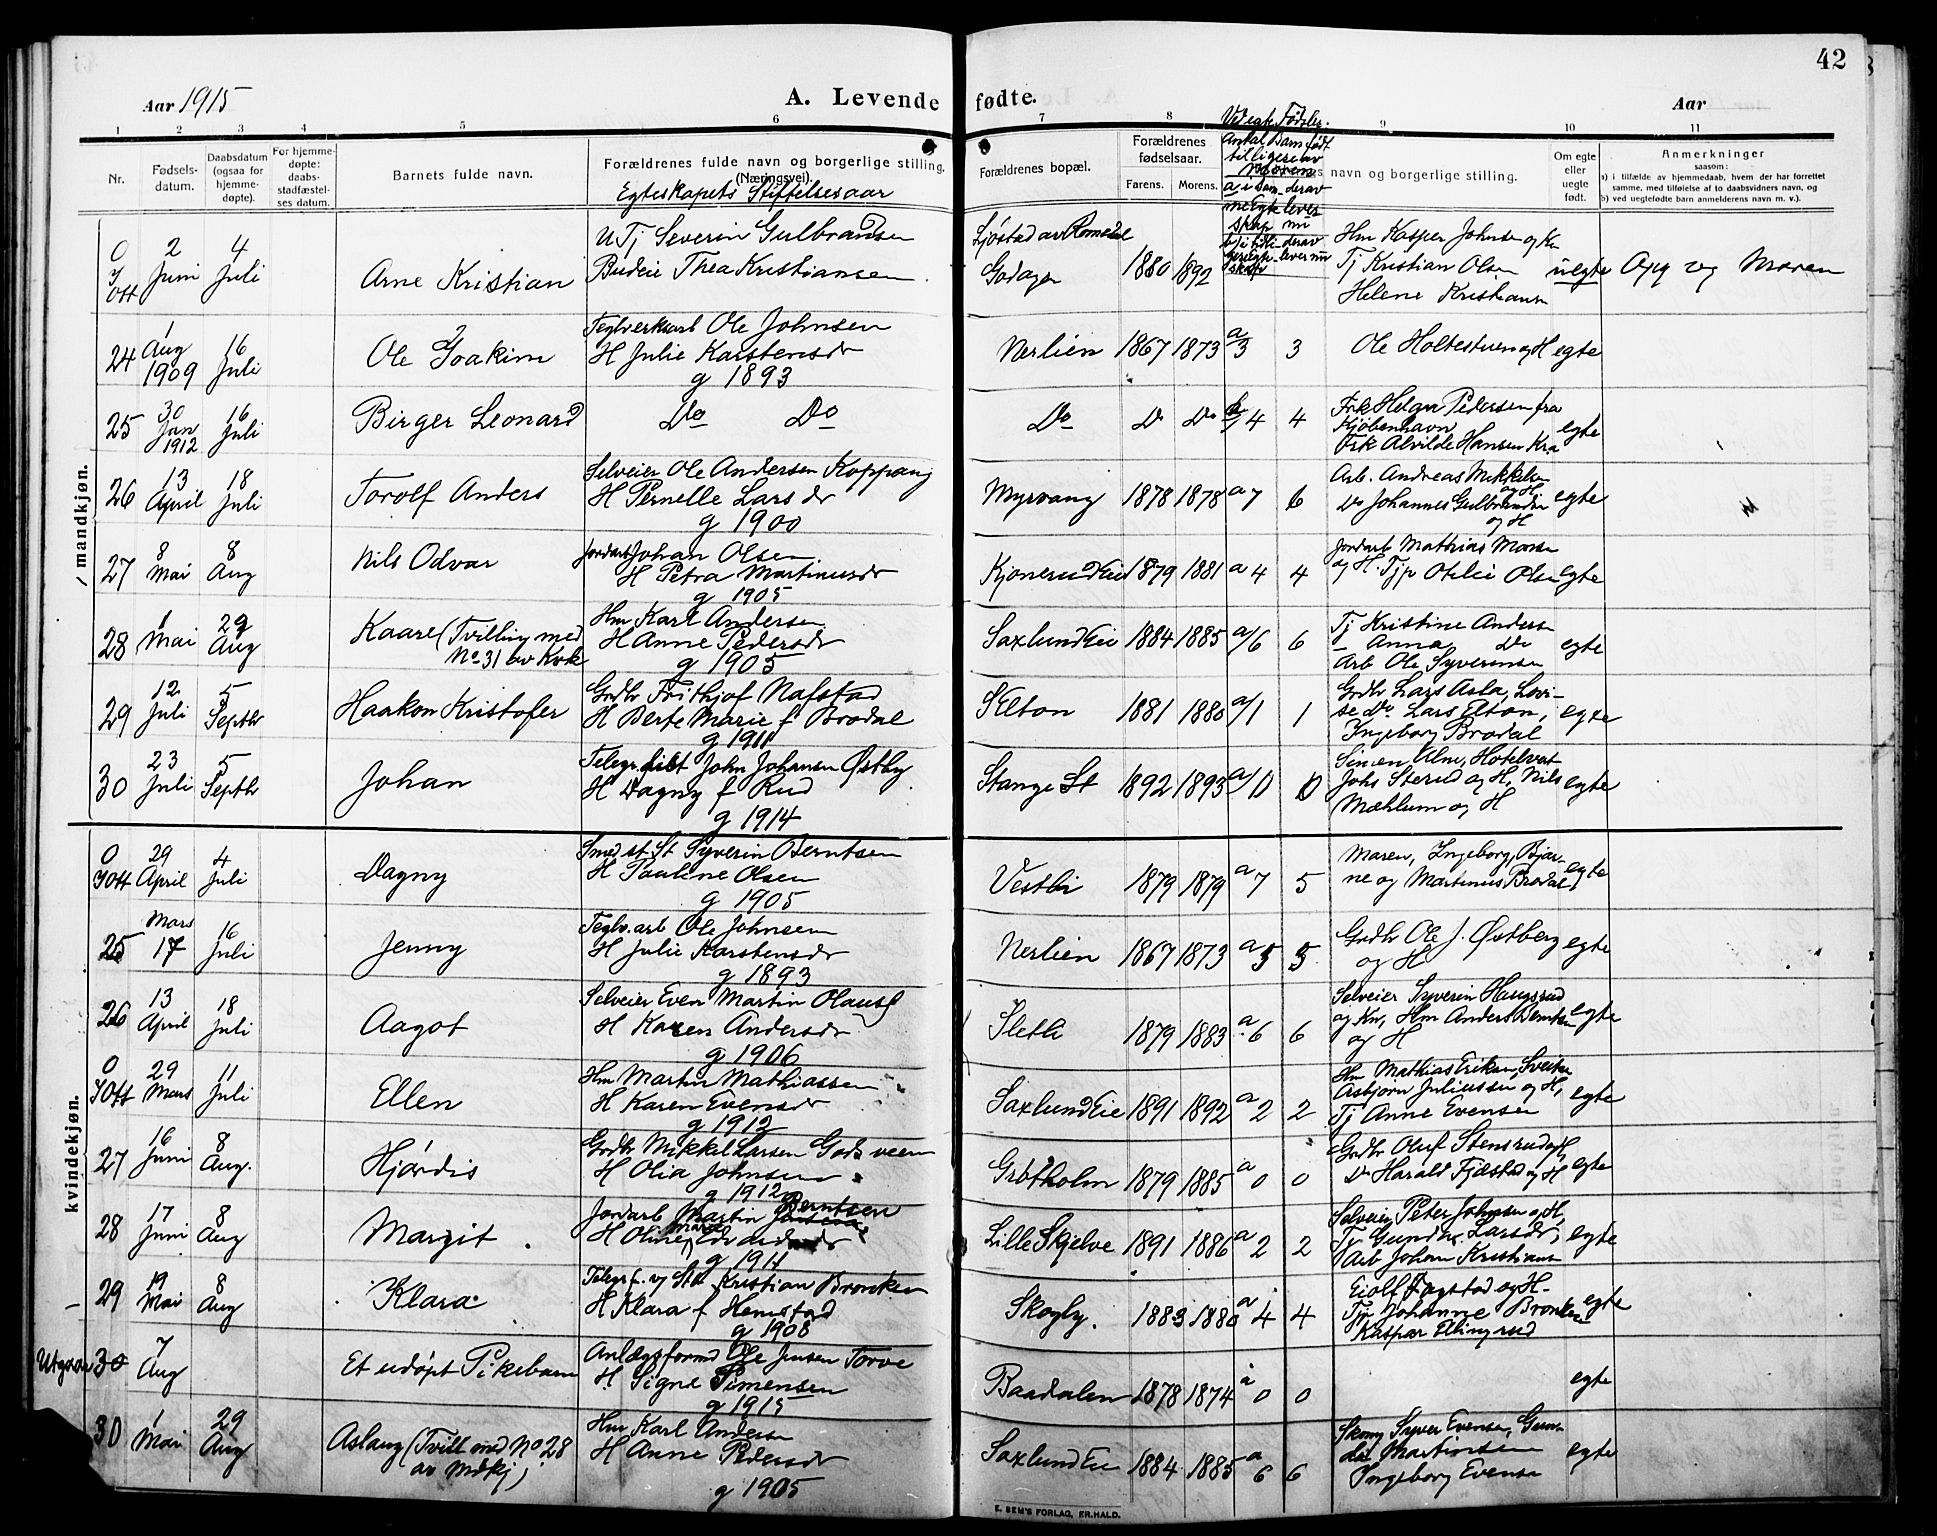 42
Aar 1915
A. Levende fødte.
Aar
1 2 3 4 5 6 7 8 9 10 11
Nr.
Fødsels-
datum.
Daabsdatum
(ogsaa for
hjemme-
døpte).
For hjemme-
døpte:
daabs-
stadfæstel-
ses datum.
Barnets fulde navn.
Forældrenes fulde navn og borgerlige stilling.
(Næringsvei).
Egteskapets Stiftelsesaar
Forældrenes bopæl.
Forældrenes
fødselsaar.
Farens. Morens.
navn og borgerlige stilling.
Om egte
eller
uegte
født.
Anmerkninger
saasom:
a) i tilfælde av hjemmedaab, hvem der har forrettet
samme, med tilføielse af to daabsvidners navn, og
b) ved uegtefødte barn anmelderens navn m. v.).
mandkjøn.
0 2 Juni 4 Juli Arne Kristian
U Tj Severin Gulbrandsen
Budeie Thea Kristiansen
Godager 1880 1892
Tj Kristian Olsen
Helene
uegte Opg og Moren
24 1 Aug 1909 16 Juli Ole Joakim
Teglverksarb Ole Johnsen
H Julie Karstensdr
g 1893
Nerlien 1867 1873 a/3 3 Ole Holtestuen og H egte
25 30 Jan 1912 16 Juli Birger Leonard Do Do Do Do Do b/4 4
Frk Helga Pedersen fra
Kjøbenhavn
Frk Alvilde Hansen Kra
egte
26 13 April 18 Juli Torolf Anders
Selveier Ole Andersen Koppang
H Pernelle Larsdr
g 1900
Myrvang 1878 1878 a 7 6
Arb. Andreas Mikkelsen
og H
Do Johannes Gulbrandsen
og H
egte
27 8 Mai 8 Aug Nils Odvar
Jordarb Johan Olsen
H Petra Martinusdr
g 1905
Kjonerud Eie 1879 1881 a 4 4
Jordarb Mathias
og H. Tjp Otilie Olsen
egte
28 1 Mai 29 Aug Kaare (Tvilling med
No 31 av Kvk
Hm Karl Andersen
H Anne Pedersdr
g 1905
Saxlund Eie 1884 1885 a/6 6
Tj Kristine Andersen
Anna Do
Arb Ole Syversen
egte
29 12 Juli 5 Septbr Haakon Kristofer
Grdbr Frithjof Nafstad
H Berte Marie f Brodal
g 1911
S Elton 1881 1880 a/1 1
Grdbr Lars Asla, Lovi-
se Do Lars Elton,
Ingeborg Brodal
egte
30 23 Juli 5 Septbr Johan
John Johansen Østby
H Dagny f Rud
g 1914
Stange St 1892 1893 a/0 0
Simen Alm, Hotelvert
Johs Sterud og H, Nils
Mæhlum og H
egte
kvindekjøn.
0 29 April 4 Juli Dagny
Smed st. St Syverin Berntsen
H Pauline Olsen
g 1905
Vestbi 1879 1879 a 7 5
Maren, Ingeborg, Bjar-
ne og Martinus Brodal
egte
25 Mars 17 16 Juli Jenny
Teglv.arb Ole Johnsen
H Julie Karstensdr
g 1893
Nerlien 1867 1873 a 5 5
Grdbr Ole J. Østberg
og H
egte
26 13 April 18 Juli Aagot
Selveier Even Martin Olausen
H Karen Andersdr
g 1906
Sletli 1879 1883 a 6 6
Selveier Syverin Haugsrud
og Kn, Hm Anders Berntsen
og H
egte
0 29 Mars 11 Juli Ellen
Hm Martin Mathiassen
H Karen Evensdr
g 1912
Saxlund Eie 1891 1892 a 2 2
Hm Mathias Eriksen,
Asbjørn Juliussen og H,
Tj Anne Evensen
egte
27 16 Juni 8 Aug. Hjørdis
Grdbr Mikkel Larsen
H Olia Johnsen
g 1912
Grøtholm 1879 1885 a 0 0
Grdbr Oluf Stensrud og H,
Do Harald Fjæstad og H
egte
28 17 Juni 8 Aug Margit
Jordarb Martin Berntsen
H Oline
g 1911
Lille Skjelve 1891 1886 a 2 2
Selveier Peter Johnsen og H,
Tj Larsdr,
Arb Johan Kristiansen
egte
29 19 Mai 8 Aug Klara
Kristian Bronken
H Klara f Hemstad
g 1908
Skogly. 1883 1880 a 4 4
Eiolf Fagstad og H-
Tjp Johanne Bronken
Kaspar Ellingsrud
egte
Utgaar 30 7 Aug Et udøpt Pikebarn
Anlægsformd Ole Jensen Torve
H. Signe Simensen
g 1915
Baadalen 1878 1874 a 0 0 egte
30 1 Mai 29 Aug Aslaug (Tvill med No 28
av Mdkj)
Hm Karl Andersen
H Anne Pedersdr
g 1905
Saxlund Eie 1884 1885 a 6 6
Syver Evensen,
Martinsen
Ingeborg Evensen
egte
E. SEM'S FORLAG, FR.HALD.